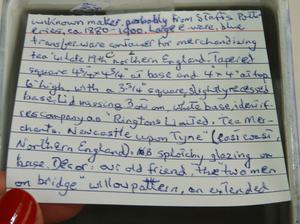 unknown maker, probably from Staffs Pott-
eries, ca. 1880-1900. Large blue
transferware container for merchandising
tea late 19th C Northern England. Tapered
square 4¾" x 4¾" at base and 4 x 4" at top
6" high with a 3¾" square, slightly recessed
base. Lid missing. Bottom, white base, identif-
ies company as "Ringtons Limited, Tea Mer-
chants, Newcastle upon Tyne" (East coast,
Northern England). splotchy glazing on
base. Décor: our old friend, the "two men
on bridge" willow pattern, an extended